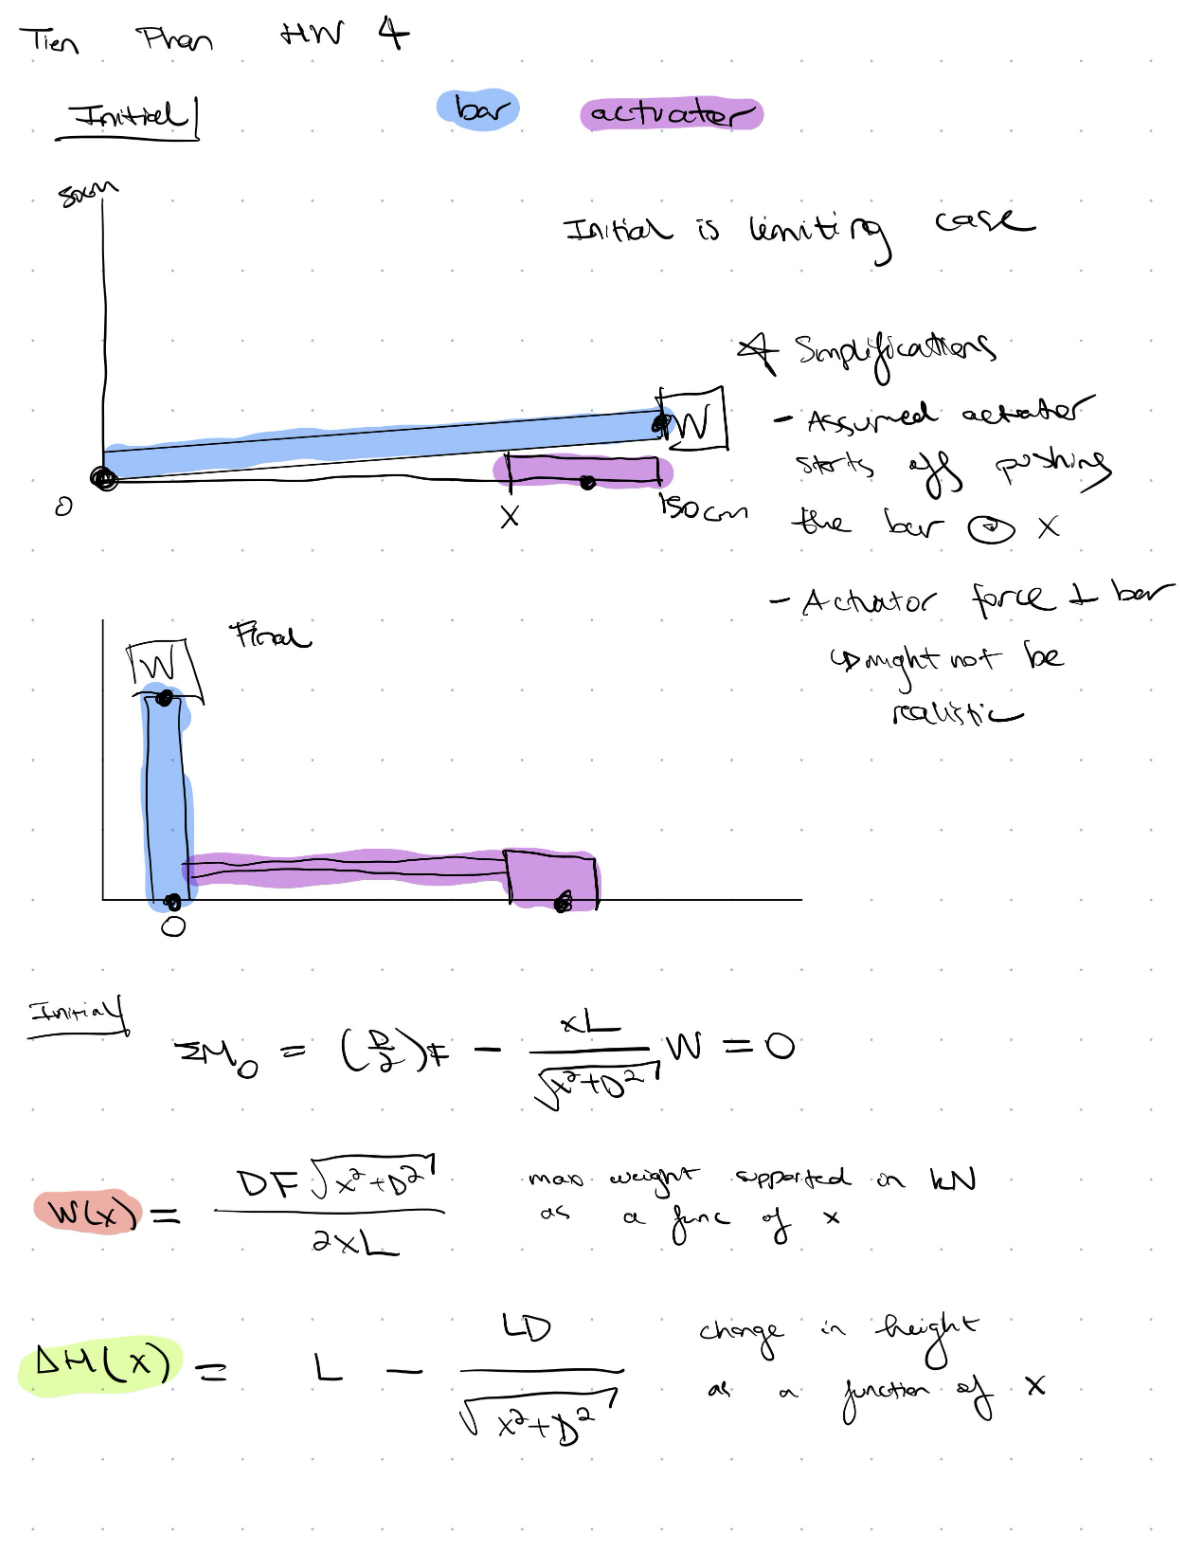 Tien Phan HW 4
Initial
bar actuater
50cm
Initial is limiting case
W
0 X 150cm
* Simplifications
- Assumed actuater
starts off pushing
the bar @ X
- Actuator force ⊥ bar
↳ might not be
realistic
Final
W
O
Initial
ΣM_O = (D/2)F - xL/√(x²+D²) W = 0
W(x) = DF√(x²+D²) / 2xL
max weight supported in kN
as a func of x
ΔH(x) = L - LD/√(x²+D²)
change in height
as a function of x